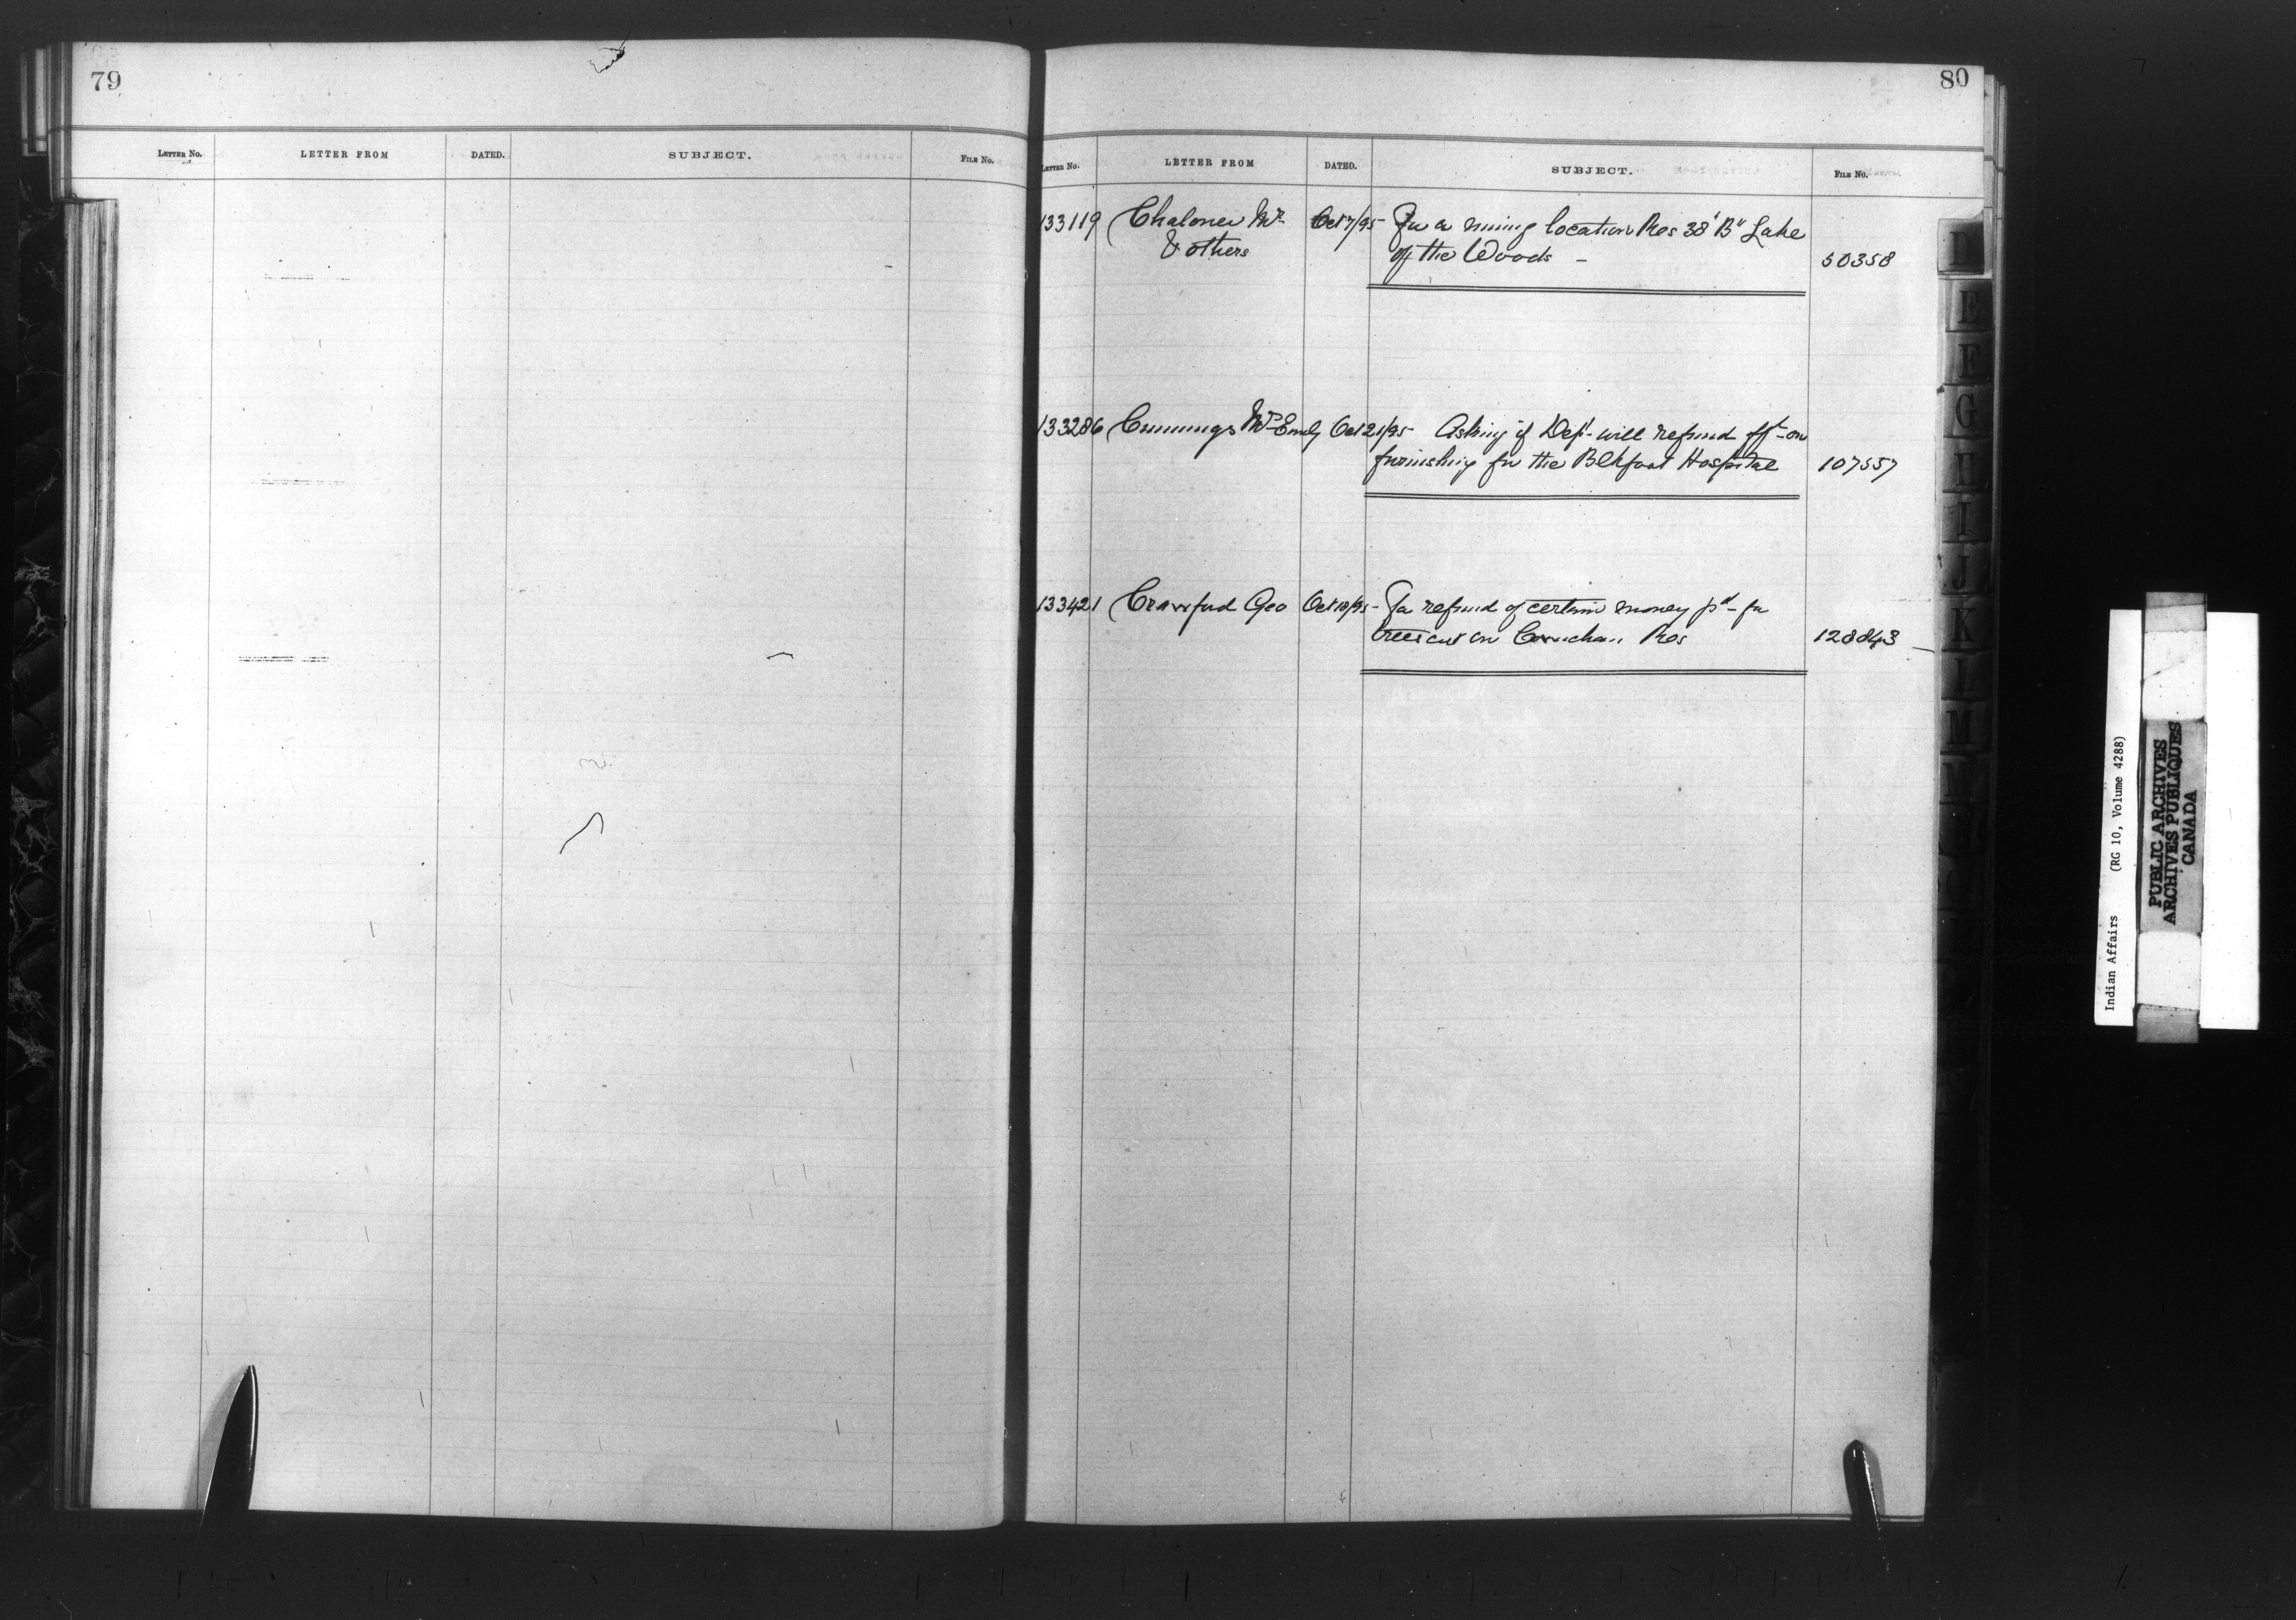 79
LETTER NO. LETTER FROM DATED. SUBJECT. FILE NO.
80
LETTER NO. LETTER FROM DATED. SUBJECT. FILE NO.
133119 Chaloner Mr Oct 7/95 For a mining location Res 38 "B" Lake
& others of the Woods - 50358
133286 Cummings Mrs Emily Oct 21/95 Asking if Dept will refund frt on
furnishing for the Blkfoot Hospital 107557
133421 Crawford Geo Oct 18/95 For refund of certain money pd for
trees cut on Cowichan Res 128843
D
E
F
G
H
I
J
K
L
M
Indian Affairs (RG 10, Volume 4288)
PUBLIC ARCHIVES
ARCHIVES PUBLIQUES
CANADA